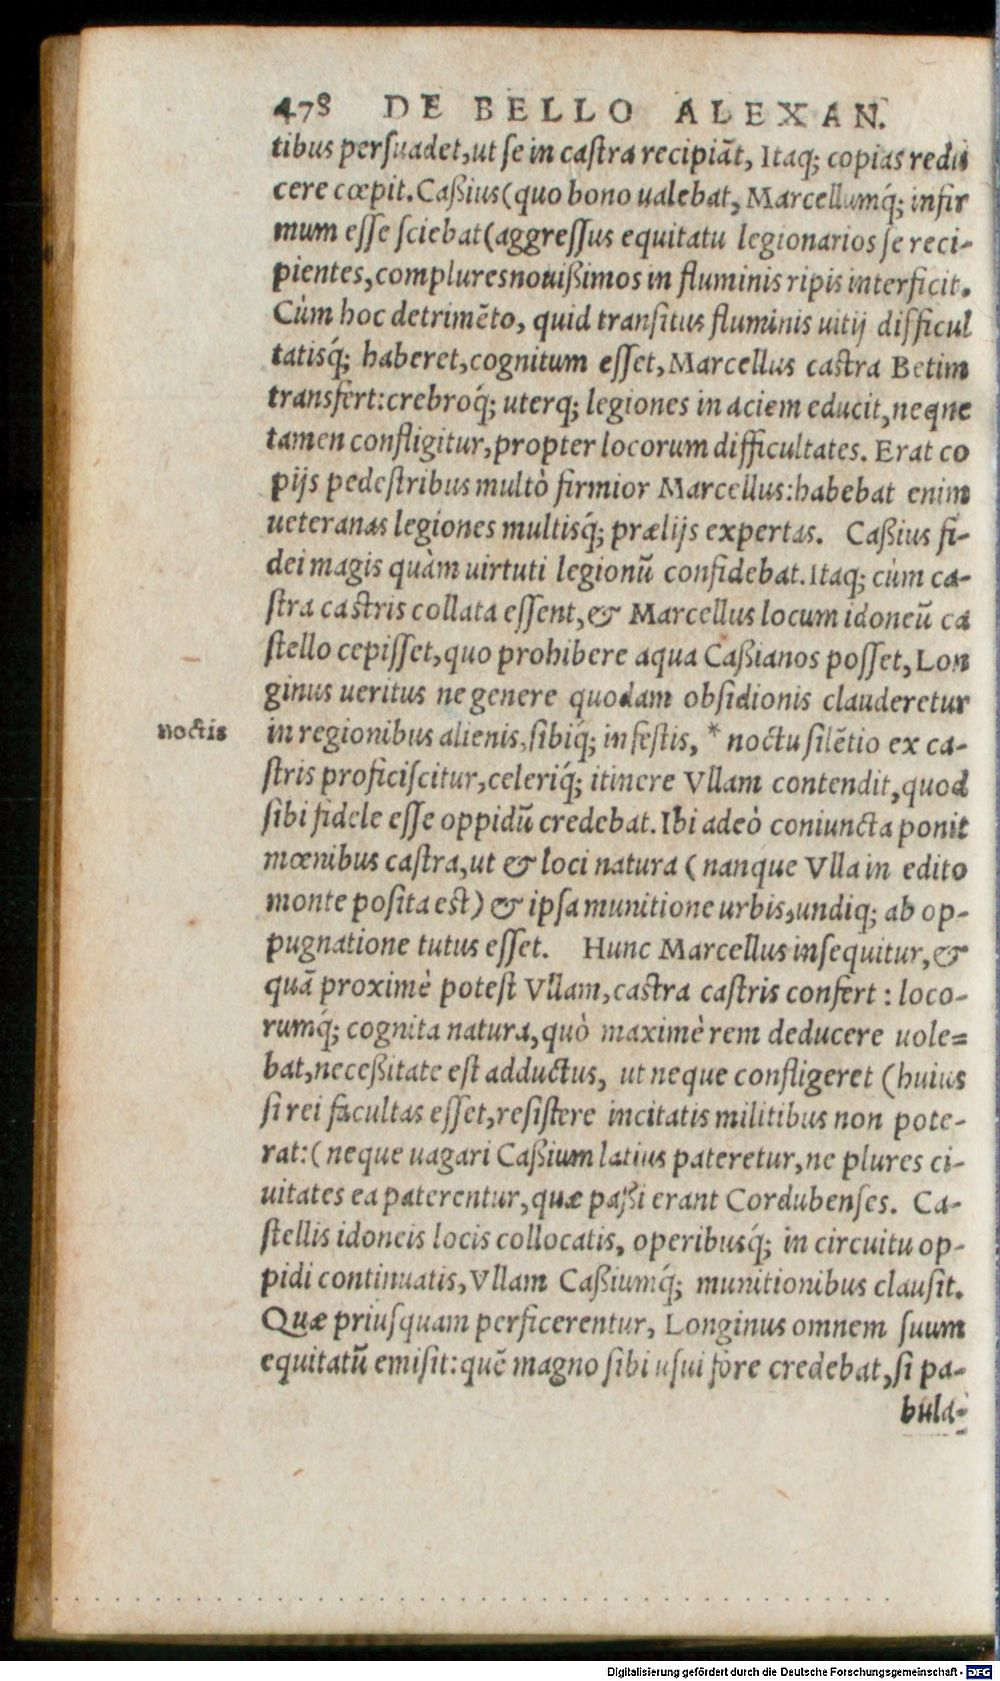 478 DE BELLO ALEXAN.
tibus persuadet, ut se in castra recipiāt, Itaq; copias redu
cere cœpit. Caßius (quo bono ualebat, Marcellumq́; infir
mum esse sciebat (aggressus equitatu legionarios se reci-
pientes, complures nouißimos in fluminis ripis interficit.
Cùm hoc detrimēto, quid transitus fluminis uitij difficul
tatisq́; haberet, cognitum esset, Marcellus castra Betim
transfert: crebroq́; uterq; legiones in aciem educit, neque
tamen confligitur, propter locorum difficultates. Erat co
pijs pedestribus multò firmior Marcellus: habebat enim
ueteranas legiones multisq́; prælijs expertas. Caßius fi-
dei magis quàm uirtuti legionū confidebat. Itaq; cùm ca-
stra castris collata essent, & Marcellus locum idoneū ca
stello cepisset, quo prohibere aqua Caßianos posset, Lon
ginus ueritus ne genere quodam obsidionis clauderetur
noctis in regionibus alienis, sibiq́; infestis, * noctu silētio ex ca-
stris proficiscitur, celeriq́; itinere Vllam contendit, quod
sibi fidele esse oppidū credebat. Ibi adeò coniuncta ponit
mœnibus castra, ut & loci natura (nanque Vlla in edito
monte posita est) & ipsa munitione urbis, undiq; ab op-
pugnatione tutus esset. Hunc Marcellus insequitur, &
quā proximè potest Vllam, castra castris confert : loco-
rumq́; cognita natura, quò maximè rem deducere uole=
bat, neceßitate est adductus, ut neque confligeret (huius
si rei facultas esset, resistere incitatis militibus non pote-
rat: (neque uagari Caßium latius pateretur, ne plures ci-
uitates ea paterentur, quæ paßi erant Cordubenses. Ca-
stellis idoneis locis collocatis, operibusq́; in circuitu op-
pidi continuatis, Vllam Caßiumq́; munitionibus clausit.
Quæ priusquam perficerentur, Longinus omnem suum
equitatū emisit: quē magno sibi usui fore credebat, si pa-
bula-
Digitalisierung gefördert durch die Deutsche Forschungsgemeinschaft - DFG